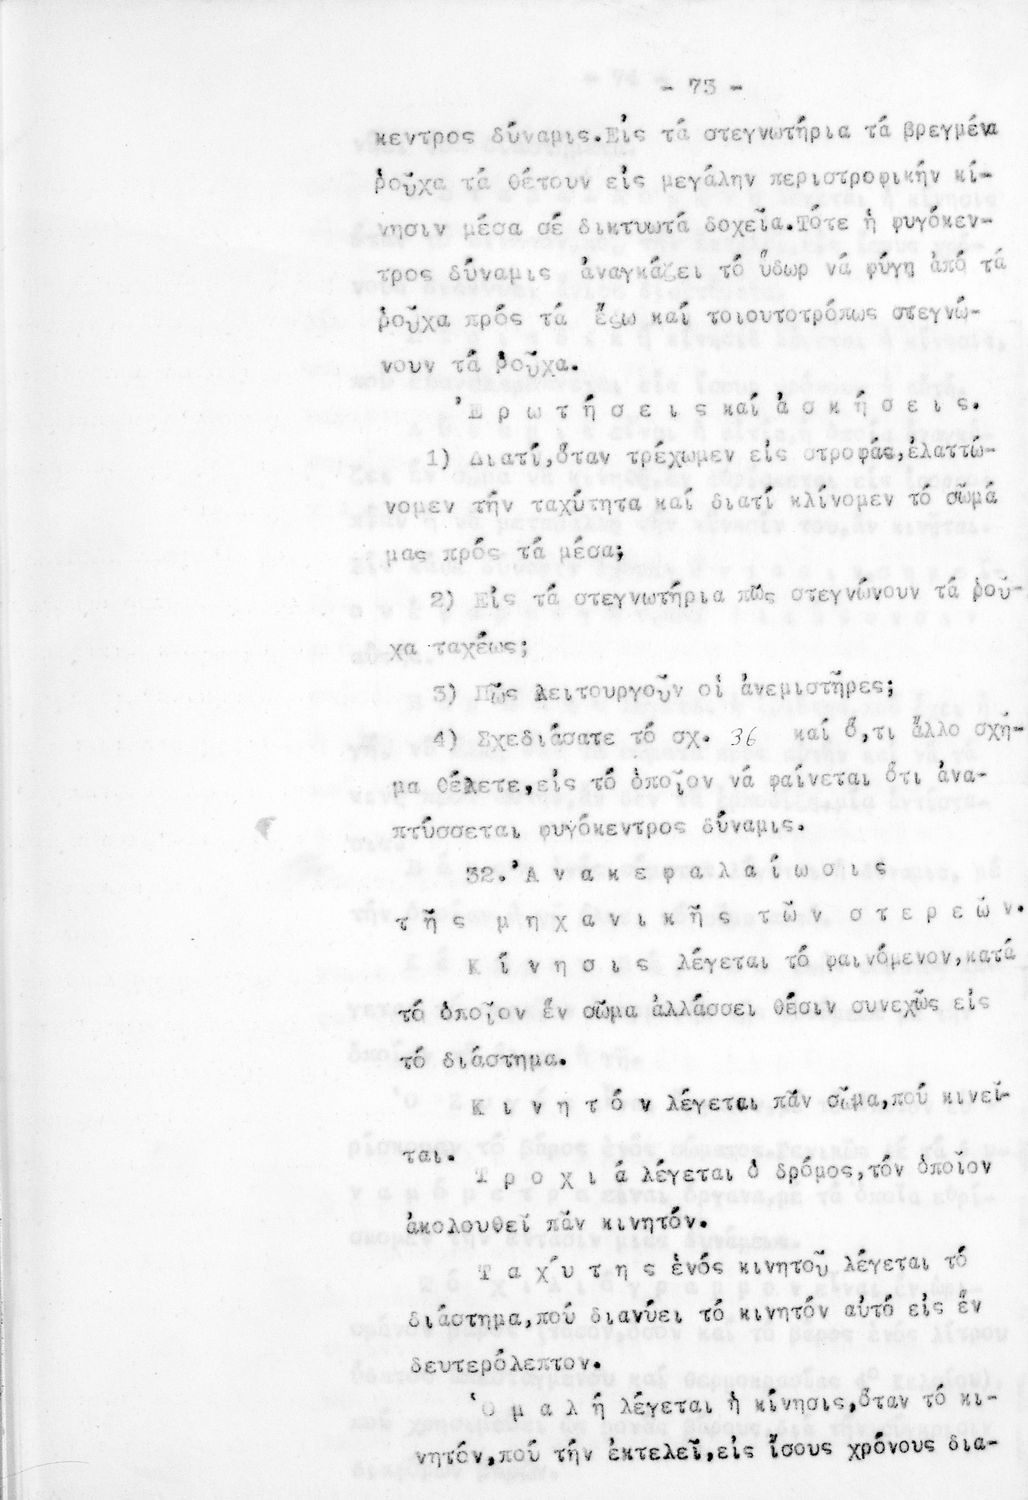 - 73 -
κεντρος δύναμις.Εἰς τά στεγνωτήρια τά βρεγμένα
ροῦχα τά θέτουν εἰς μεγάλην περιστροφικήν κί-
νησιν μέσα σέ δικτυωτά δοχεῖα.Τότε ἡ φυγόκεν-
τρος δύναμις ἀναγκάζει τό ὕδωρ νά φύγη ἀπό τά
ροῦχα πρός τά ἔξω καί τοιουτοτρόπως στεγνώ-
νουν τά ροῦχα.
Ἐ ρ ω τ ή σ ε ι ς καί ἀ σ κ ή σ ε ι ς.
1) Διατί,ὅταν τρέχωμεν εἰς στροφάς,ἐλαττώ-
νομεν τήν ταχύτητα καί διατί κλίνομεν τό σῶμά
μας πρός τά μέσα;
2) Εἰς τά στεγνωτήρια πῶς στεγνώνουν τά ροῦ-
χα ταχέως;
3) Πῶς λειτουργοῦν οἱ ἀνεμιστῆρες;
4) Σχεδιάσατε τό σχ. 36 καί ὅ,τι ἄλλο σχῆ-
μα θέλετε,εἰς τό ὁποῖον νά φαίνεται ὅτι ἀνα-
πτύσσεται φυγόκεντρος δύναμις.
32.Ἀ ν α κ ε φ α λ α ί ω σ ι ς
τ ῆ ς μ η χ α ν ι κ ῆ ς τ ῶ ν σ τ ε ρ ε ώ ν.
Κ ί ν η σ ι ς λέγεται τό φαινόμενον,κατά
τό ὁποῖον ἕν σῶμα ἀλλάσσει θέσιν συνεχῶς εἰς
τό διάστημα.
Κ ι ν η τ ό ν λέγεται πᾶν σῶμα,πού κινεῖ-
ται.
Τ ρ ο χ ι ά λέγεται ὁ δρόμος,τόν ὁποῖον
ἀκολουθεῖ πᾶν κινητόν.
Τ α χ ύ τ η ς ἑνός κινητοῦ λέγεται τό
διάστημα,πού διανύει τό κινητόν αὐτό εἰς ἕν
δευτερόλεπτον.
Ὁ μ α λ ή λέγεται ἡ κίνησις,ὅταν τό κι-
νητόν,πού τήν ἐκτελεῖ,εἰς ἴσους χρόνους δια-